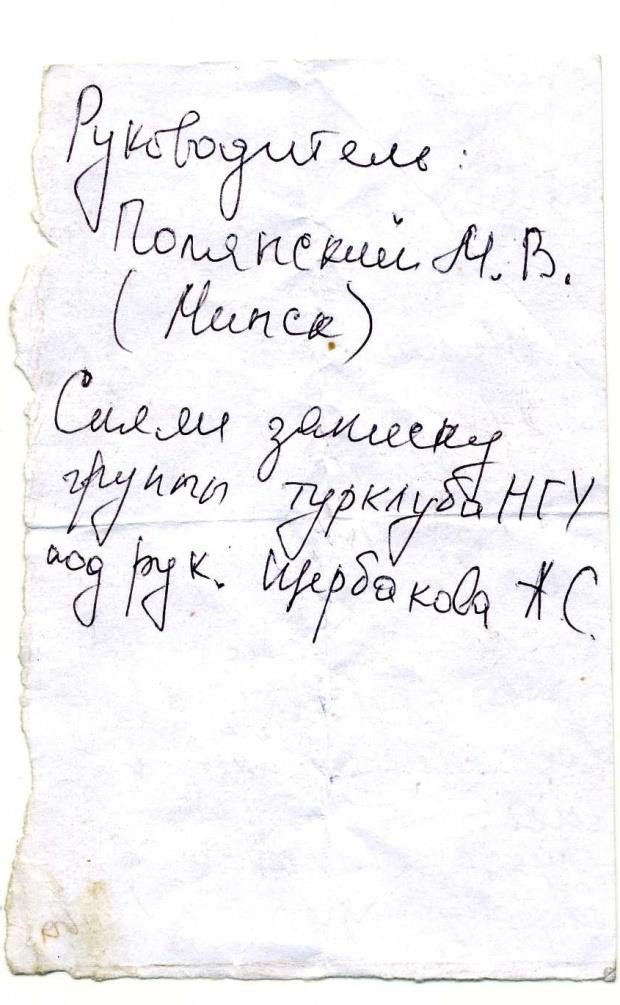 Руководитель:
Полянский М. В.
(Минск)
Сняли записку
группы турклуба НГУ
под рук. Щербакова А С.